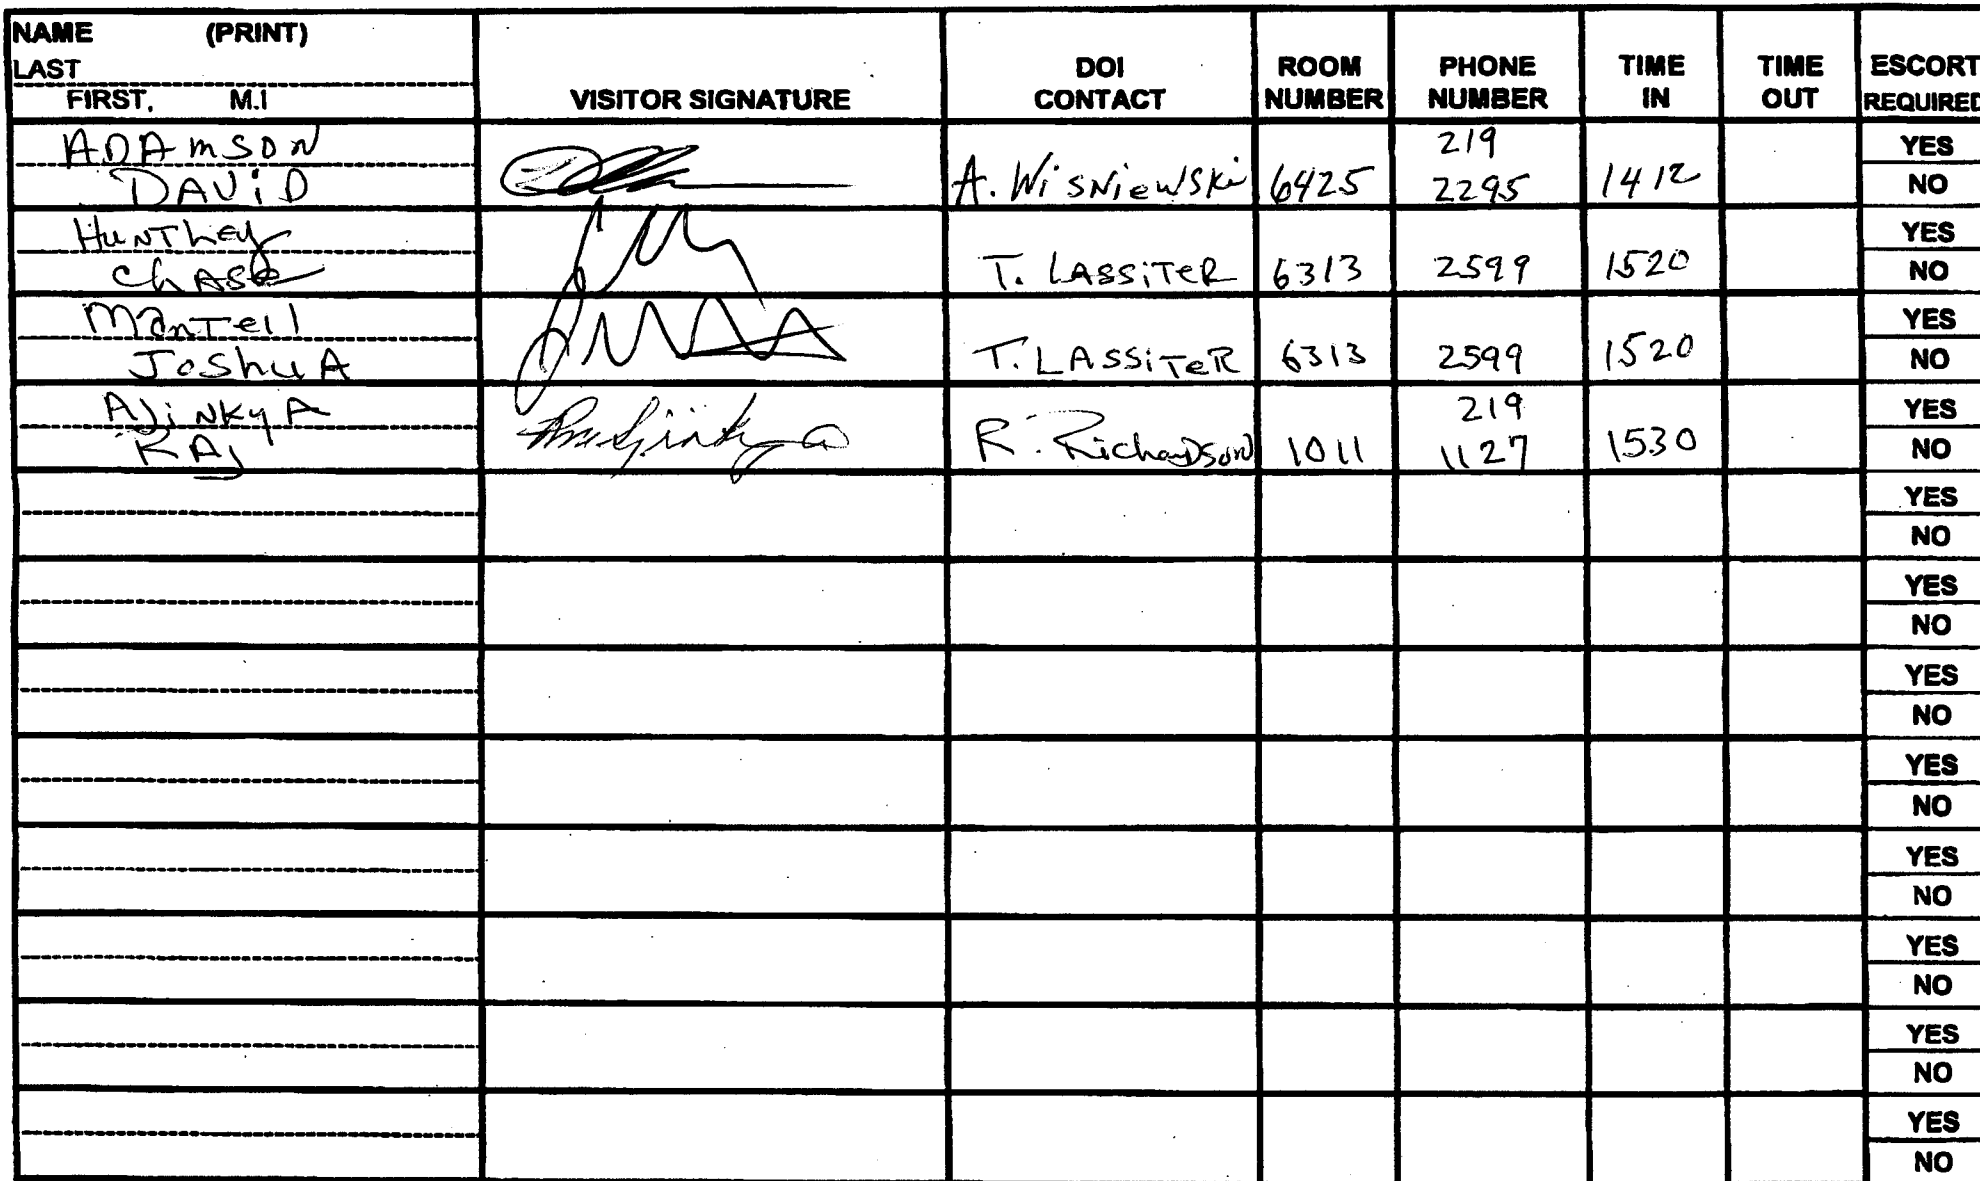 NAME (PRINT)
LAST
FIRST, M.I
VISITOR SIGNATURE
DOI CONTACT
ROOM NUMBER
PHONE NUMBER
TIME IN
TIME OUT
ESCORT REQUIRED
ADAmSON
DAViD
A. WiSNiewSKi 6425 219 2295 1412
YES
NO
HuNTLey
ChASe
T. LASSiTeR 6313 2599 1520
YES
NO
ManTell
JoShuA
T. LASSiTeR 6313 2599 1520
YES
NO
AJiNKyA
RAJ
R. RichaRDSoN 1011 219 1127 1530
YES
NO
YES
NO
YES
NO
YES
NO
YES
NO
YES
NO
YES
NO
YES
NO
YES
NO